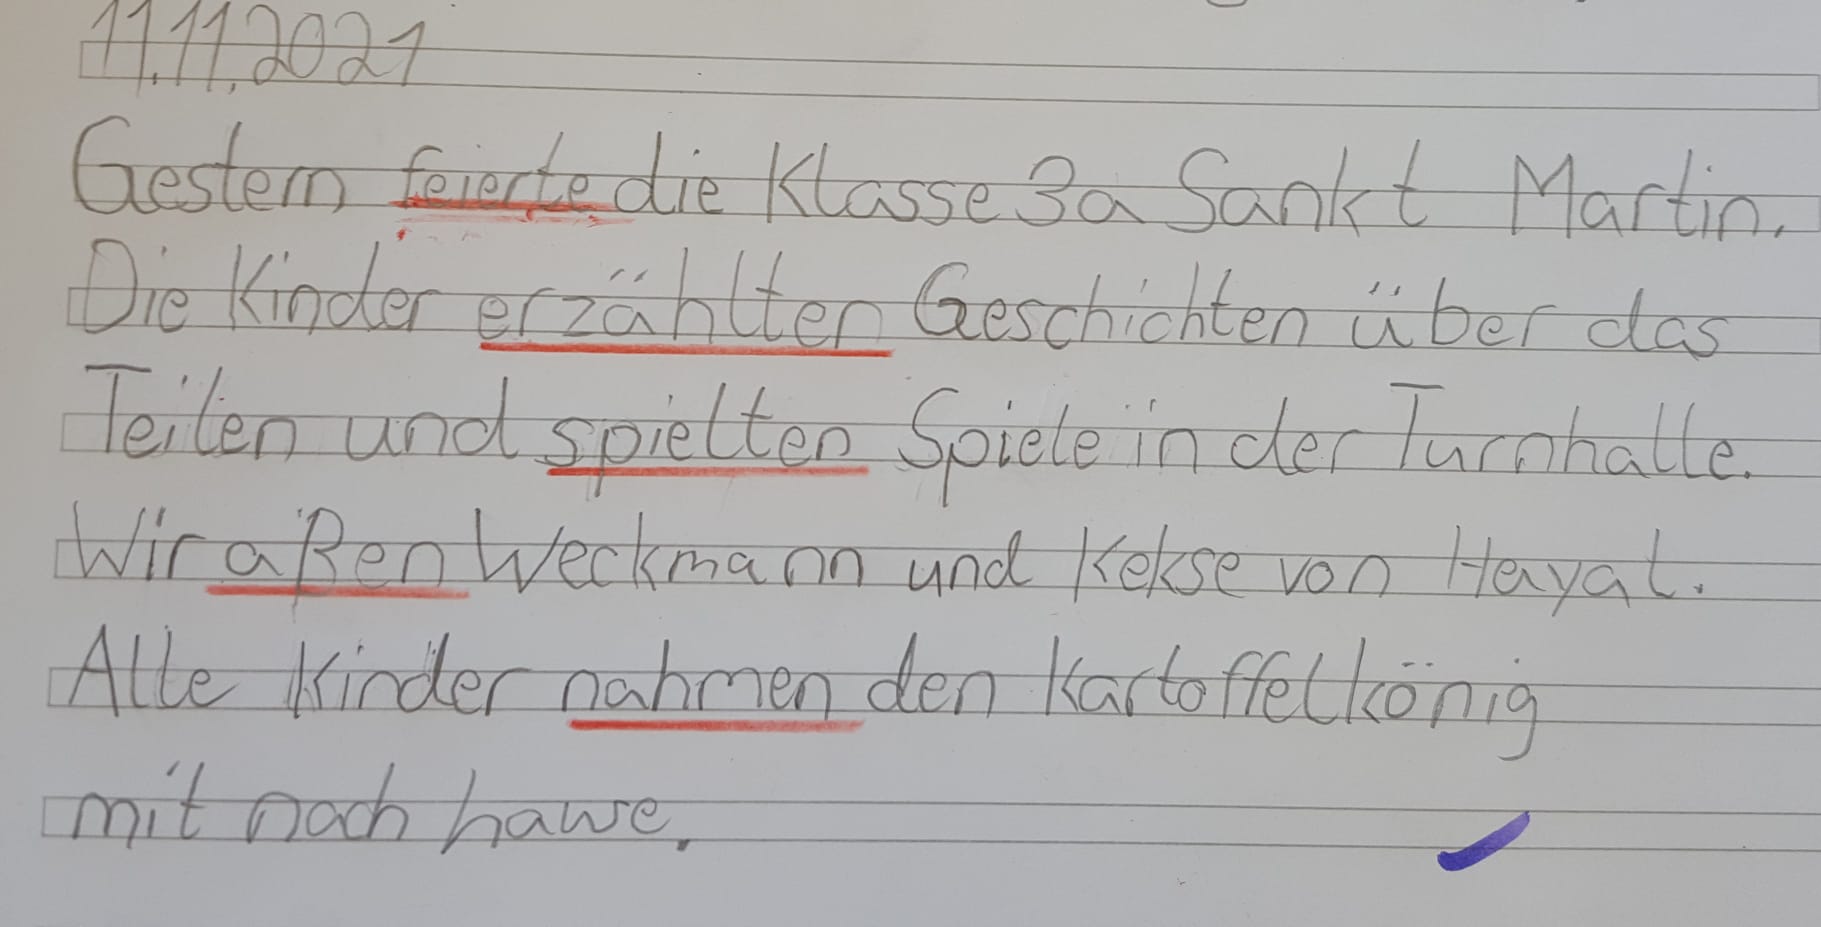 11.11.2021
Gestern feierte die Klasse 3a Sankt Martin.
Die Kinder erzählten Geschichten über das
Teilen und spielten Spiele in der Turnhalle.
Wir aßen Weckmann und Kekse von Hayat.
Alle Kinder nahmen den Kartoffelkönig
mit nach hause.